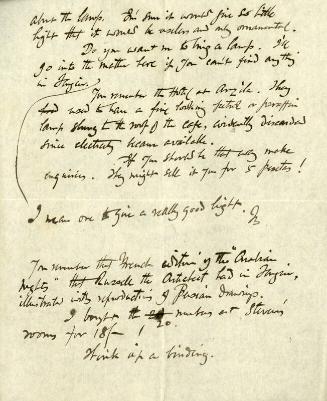 about the lamp. I'm sure it would give so little
light that it would be useless and only ornamental.
Do you want me to bring a lamp. I'll
go into the matter here if you can't find anything
in Tangier.
You remember the Hotel at Arzila. They
used to have a fine looking petrol or paraffin
lamp slung to the roof of the cafe, evidently discarded
since electricity became available.
If you should be that way make
enquiries. They might sell it you for 5 pesetas!
I mean one to give a really good light.
You remember that French edition of the "Arabian
Nights" that Russell the Architect had in Tangier,
illustrated with reproductions of Persian drawings.
I bought the numbers at Stevens'
rooms for 18/-
Work up a binding.